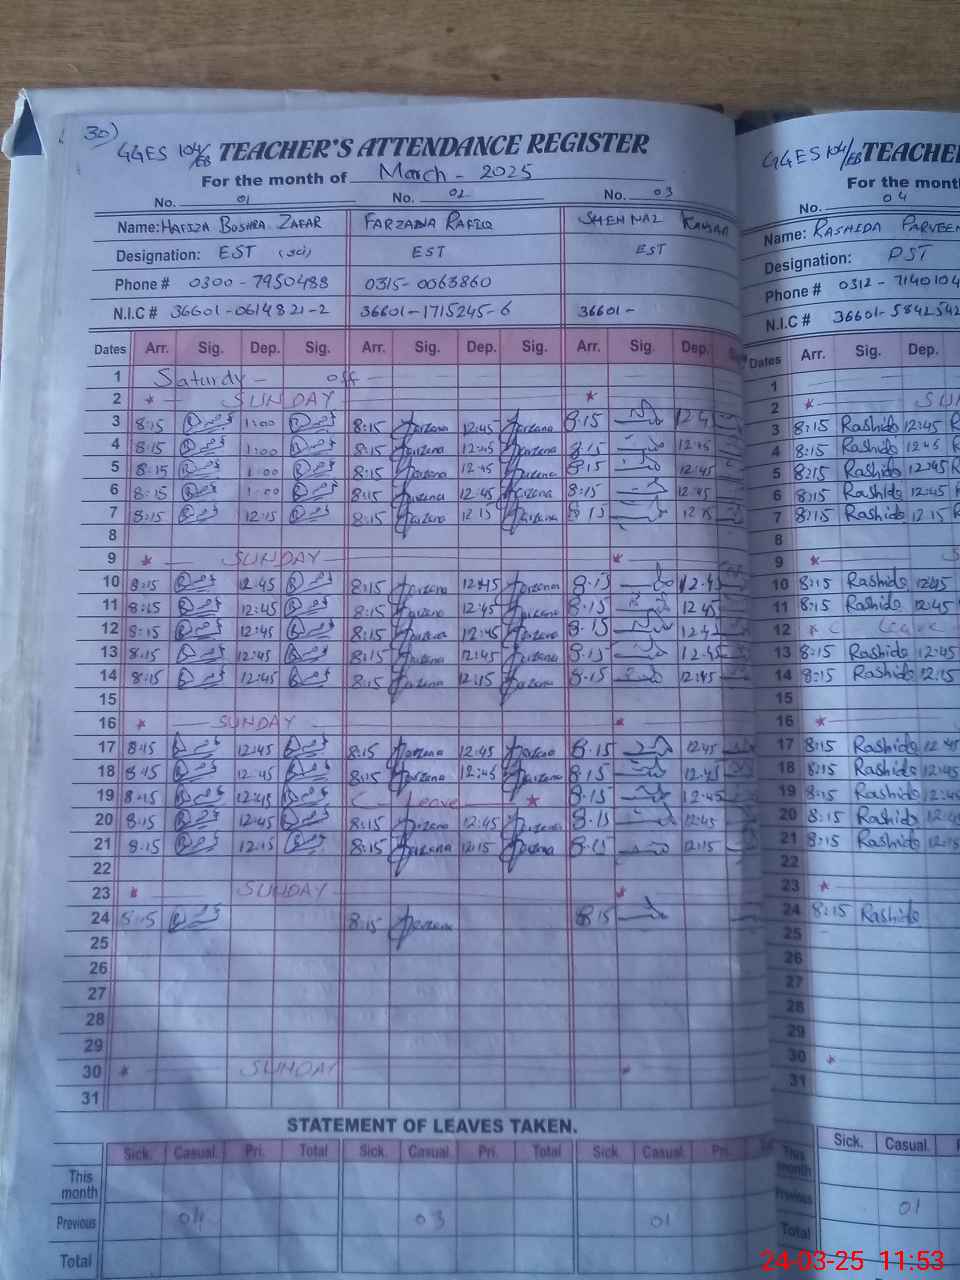 30)
GGES 104/EB TEACHER'S ATTENDANCE REGISTER
For the month of March - 2025
No. 01 No. 02 No. 03
Name: HAFIZA BUSHRA ZAFAR FARZANA RAFIQ SHEHNAZ KAUSAR
Designation: EST (sci) EST EST
Phone # 0300-7950488 0315-0063860
N.I.C # 36601-0614821-2 36601-1715245-6 36601-
Dates Arr. Sig. Dep. Sig. Arr. Sig. Dep. Sig. Arr. Sig. Dep.
1 Saturdy - off
2 * SUNDAY *
3 8:15 1:00 8:15 Farzana 12:45 Farzana 8:15 12:4
4 8:15 1:00 8:15 Farzana 12:45 Farzana 8:15 12:45
5 8:15 1:00 8:15 Farzana 12:45 Farzana 8:15 12:45
6 8:15 1:00 8:15 Farzana 12:45 Farzana 8:15 12:45
7 8:15 12:15 8:15 Farzana 12:15 Farzana 8:15 12:15
8
9 * SUNDAY *
10 8:15 12:45 8:15 Farzana 12:45 Farzana 8:15 12:45
11 8:15 12:45 8:15 Farzana 12:45 Farzana 8:15 12:45
12 8:15 12:45 8:15 Farzana 12:45 Farzana 8:15 12:4
13 8:15 12:45 8:15 Farzana 12:45 Farzana 8:15 12:45
14 8:15 12:45 8:15 Farzana 12:15 Farzana 8:15 12:45
15
16 * SUNDAY *
17 8:15 12:45 8:15 Farzana 12:45 Farzana 8:15 12:45
18 8:15 12:45 8:15 Farzana 12:45 Farzana 8:15 12:45
19 8:15 12:45 C - Leave * 8:15 12:45
20 8:15 12:45 8:15 Farzana 12:45 Farzana 8:15 12:45
21 8:15 12:15 8:15 Farzana 12:15 Farzana 8:15 12:15
22
23 * SUNDAY *
24 8:15 8:15 Farzana 8:15
25
26
27
28
29
30 * SUNDAY *
31
STATEMENT OF LEAVES TAKEN.
Sick. Casual. Pri. Total Sick. Casual. Pri. Total Sick. Casual. Pri.
This month
Previous 04 03 01
Total
GGES 104/EB TEACHE
For the mont
No. 04
Name: RASHIDA PARVEEN
Designation: PST
Phone # 0312-7140104
N.I.C # 36601-5842542
Dates Arr. Sig. Dep.
1
2 * SU
3 8:15 Rashida 12:45 R
4 8:15 Rashida 12:45 R
5 8:15 Rashida 12:45 R
6 8:15 Rashida 12:45 R
7 8:15 Rashida 12:15 R
8
9 * S
10 8:15 Rashida 12:45
11 8:15 Rashida 12:45
12 * C Leave
13 8:15 Rashida 12:45
14 8:15 Rashida 12:15
15
16 *
17 8:15 Rashida 12:45
18 8:15 Rashida 12:45
19 8:15 Rashida 12:4
20 8:15 Rashida 12:45
21 8:15 Rashida 12:15
22
23 *
24 8:15 Rashida
25
26
27
28
29
30 *
31
Sick. Casual.
This month
Previous 01
Total
24-03-25 11:53